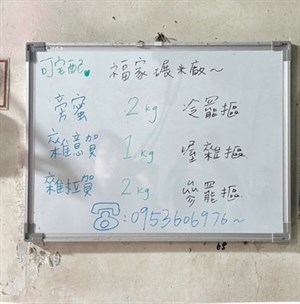 可宅配 福家碾米廠～
旁蜜 2kg 冷罷摳
雜意賀 1kg 堅雜摳
雜拉賀 2kg 罷摳
☎:0953606976～